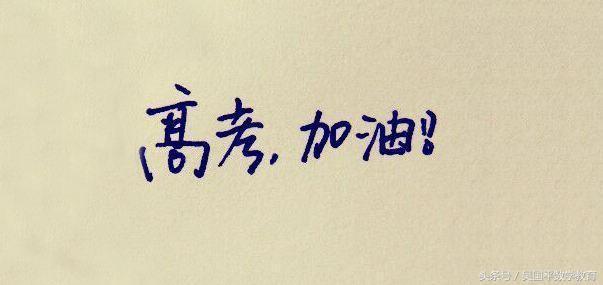 高考,加油!!
头条号 / 吴国平数学教育